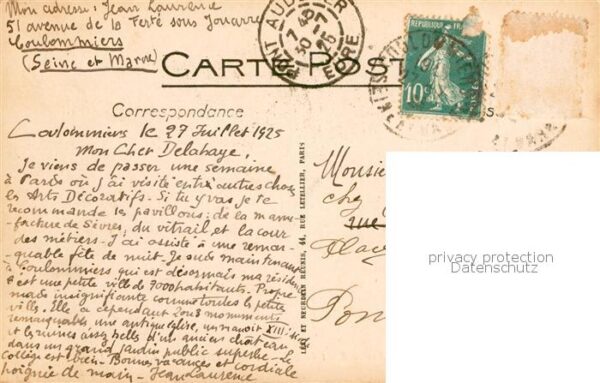 Mon adresse: Jean Laurence
51 avenue de la Ferté sous Jouarre
Coulommiers
(Seine et Marne)
CARTE POST
Correspondance
PONT AUDEMER
7 45
30 - 7
25
EURE
REPUBLIQUE FRANÇAISE
10c
Coulommiers le 27 Juillet 1925
Mon Cher Delahaye,
Je viens de passer une semaine
à Paris où j'ai visité entr'autres choses
les Arts Décoratifs. Si tu y vas je te
recommande les pavillons: de la manu-
-facture de Sèvres, du vitrail et la cour
des métiers. J'ai assisté à une remar-
quable fête de nuit. Je suis maintenant
à Coulommiers qui est désormais ma résidence
C'est une petite ville de 7000 habitants. Propre
mais insignifiante comme toutes les petites
villes. Elle a cependant 2 ou 3 monuments
remarquables une antique église, un manoir XIII
et les ruines assez belles d'un ancien château
dans un grand jardin public superbe. Le
collège est bien. Bonnes vacances et cordiale
poignée de main. Jean Laurence
LEVY ET NEURDEIN RÉUNIS, 44, RUE LETELLIER, PARIS
Monsie
chez
rue
Pon
privacy protection
Datenschutz